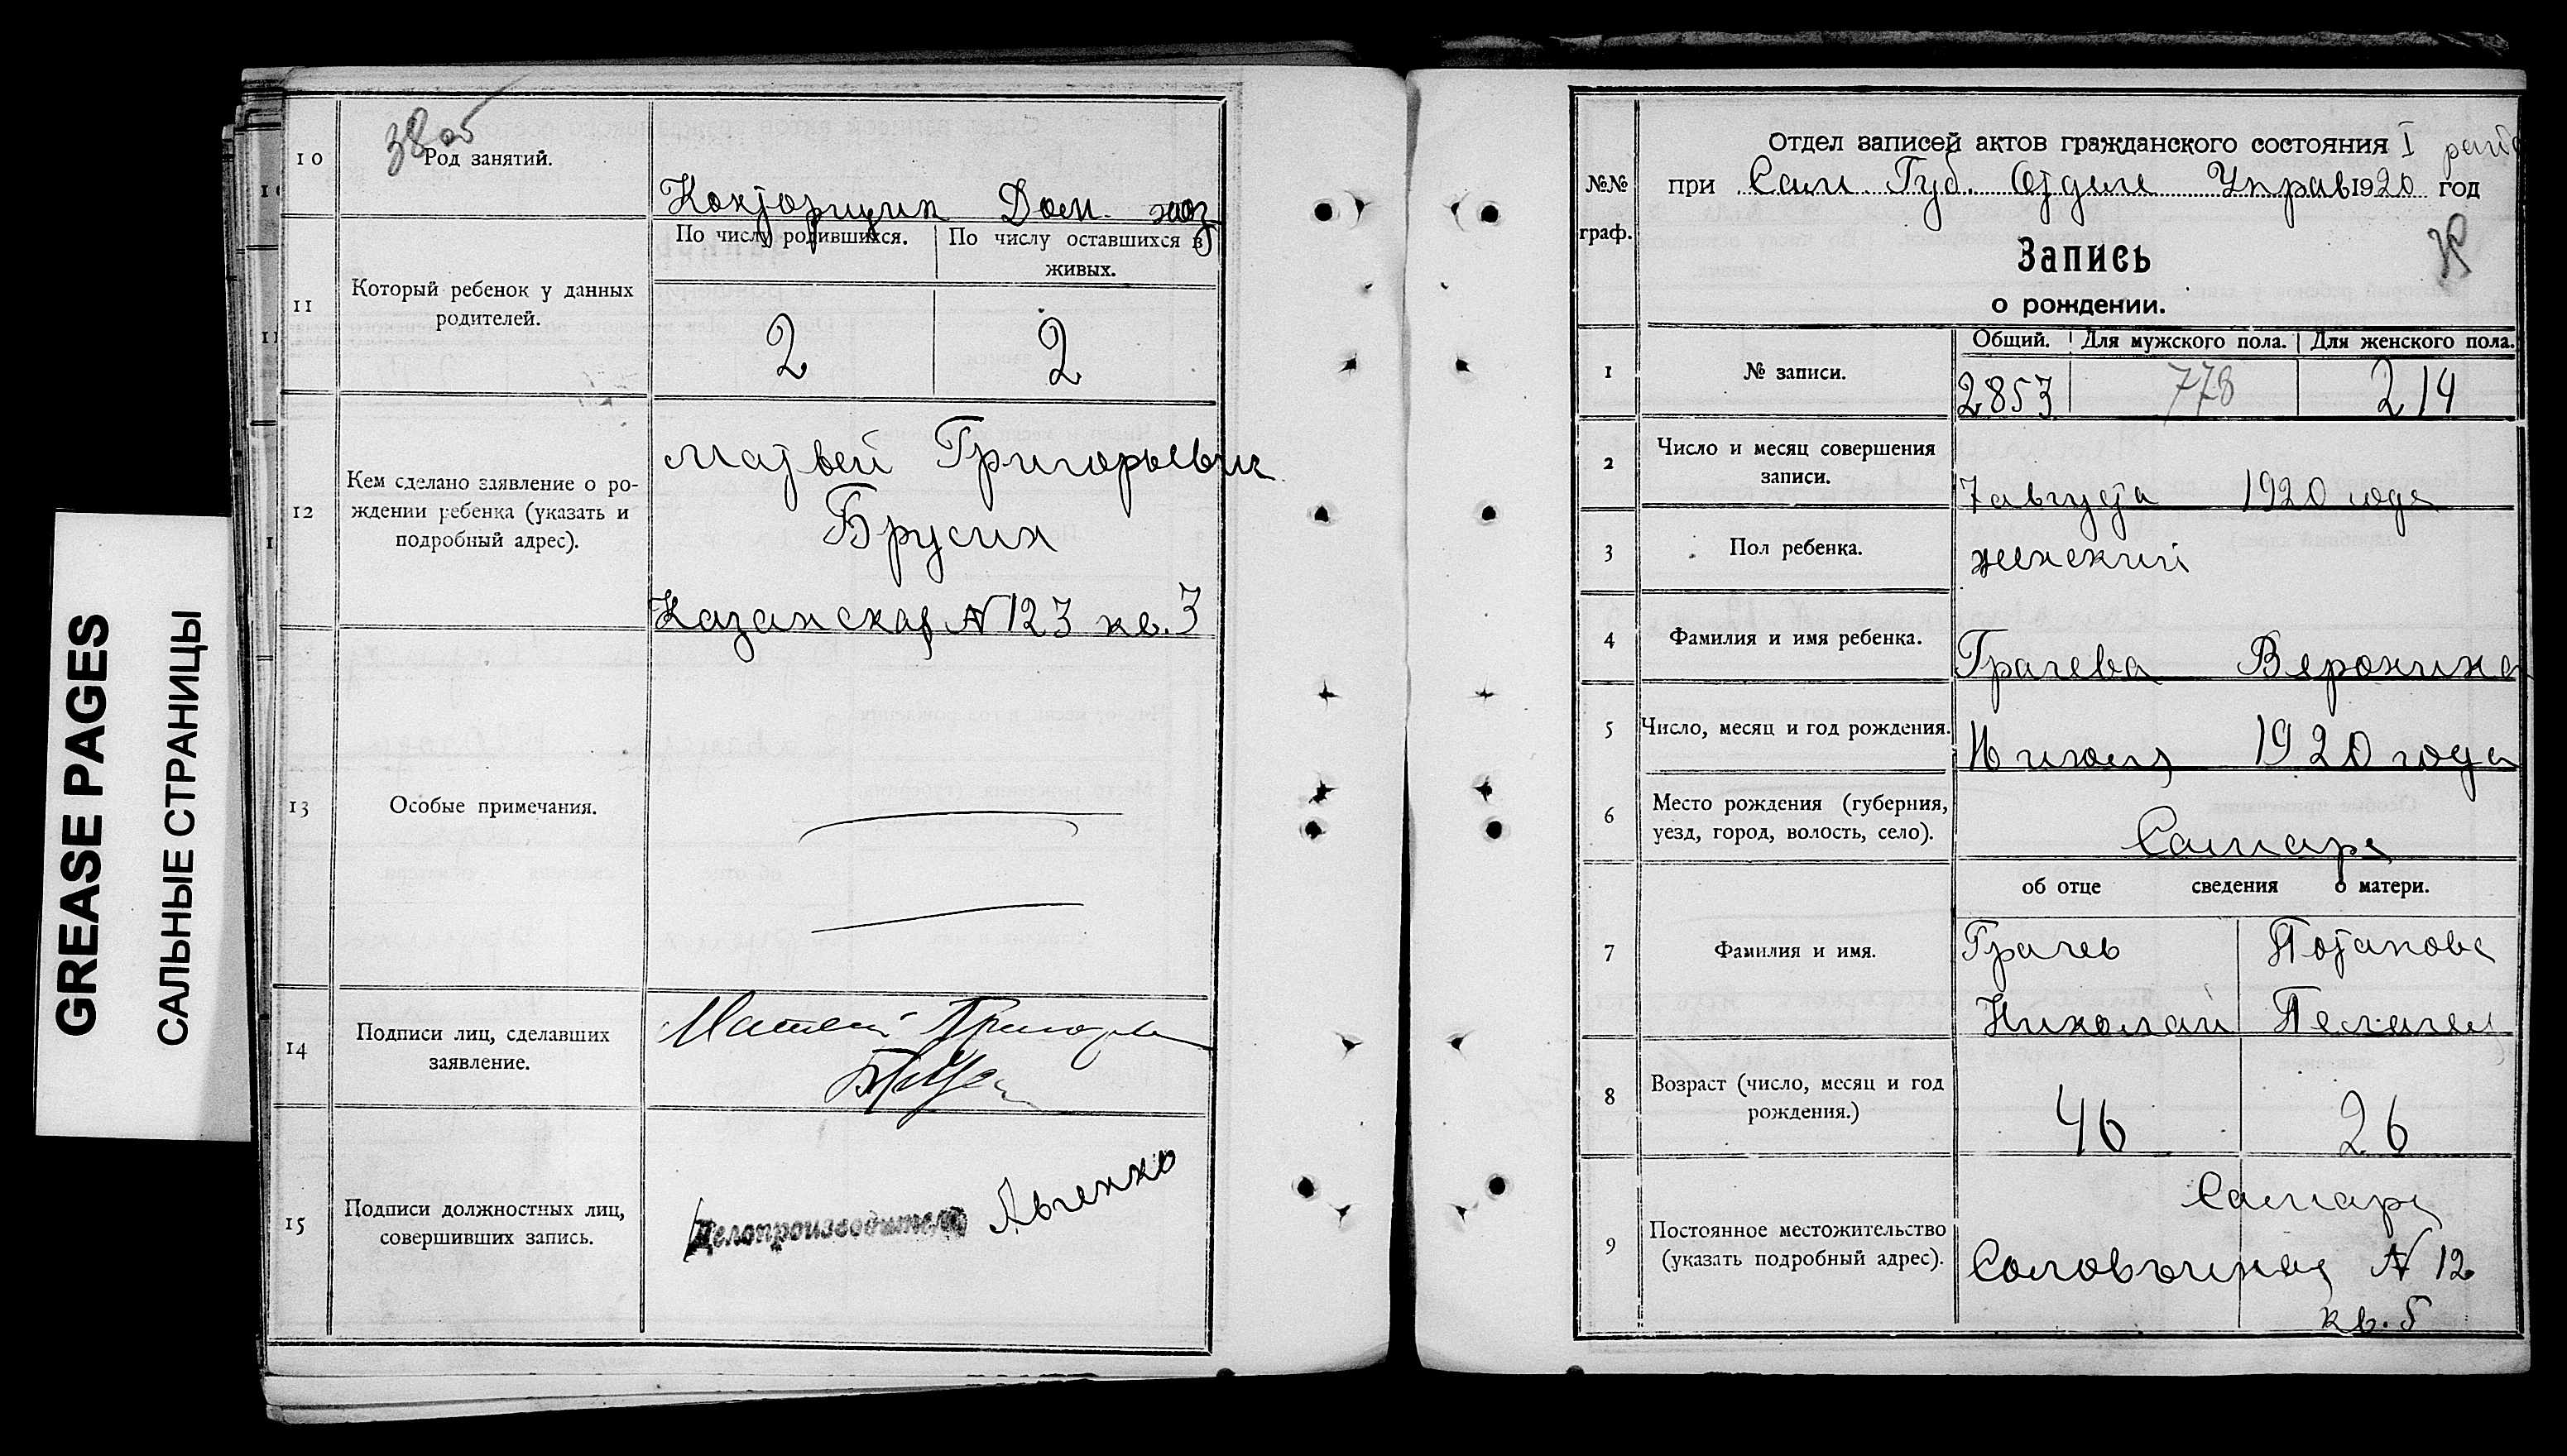 GREASE PAGES
САЛЬНЫЕ СТРАНИЦЫ
38 об
10
Род занятий.
Конторщик Дом. хоз
11
Который ребенок у данных
родителей.
По числу родившихся.
По числу оставшихся в
живых.
2
2
12
Кем сделано заявление о ро-
ждении ребенка (указать и
подробный адрес).
Матвей Григорьевич
Брусин
Казанская № 123 кв. 3
13
Особые примечания.
14
Подписи лиц, сделавших
заявление.
Матвей
15
Подписи должностных лиц,
совершивших запись.
Делопроизводитель
№№
граф.
Отдел записей актов гражданского состояния I
при Сам. Губ. Отделе Управ 1920 год
Запись
о рождении.
1
№ записи.
Общий.
Для мужского пола.
Для женского пола.
2853
778
214
2
Число и месяц совершения
записи.
7 августа 1920 года
3
Пол ребенка.
женский
4
Фамилия и имя ребенка.
Грачева
5
Число, месяц и год рождения.
16 июля 1920 года
6
Место рождения (губерния,
уезд, город, волость, село).
Самара
об отце сведения о матери.
7
Фамилия и имя.
Грачев
Николай
Потапова
Пелагея
8
Возраст (число, месяц и год
рождения.)
46
26
9
Постоянное местожительство
(указать подробный адрес).
Самара
№ 12
кв. 5